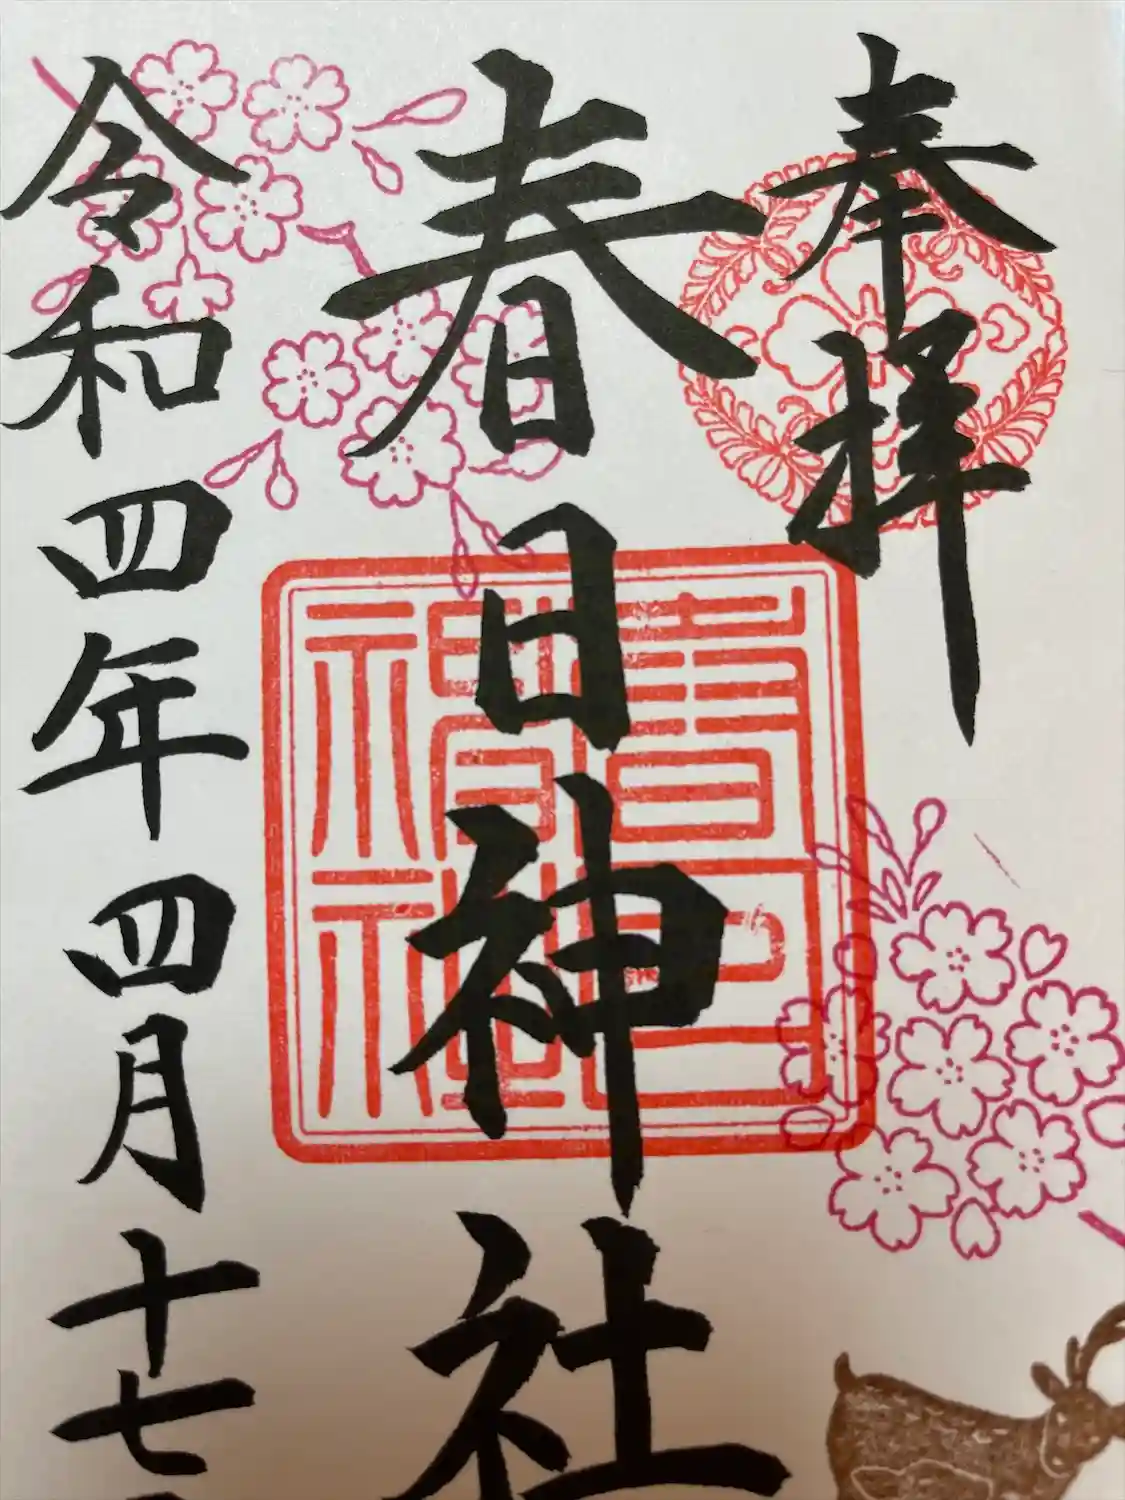 奉拝
春日神社
春日神社
令和四年四月十七